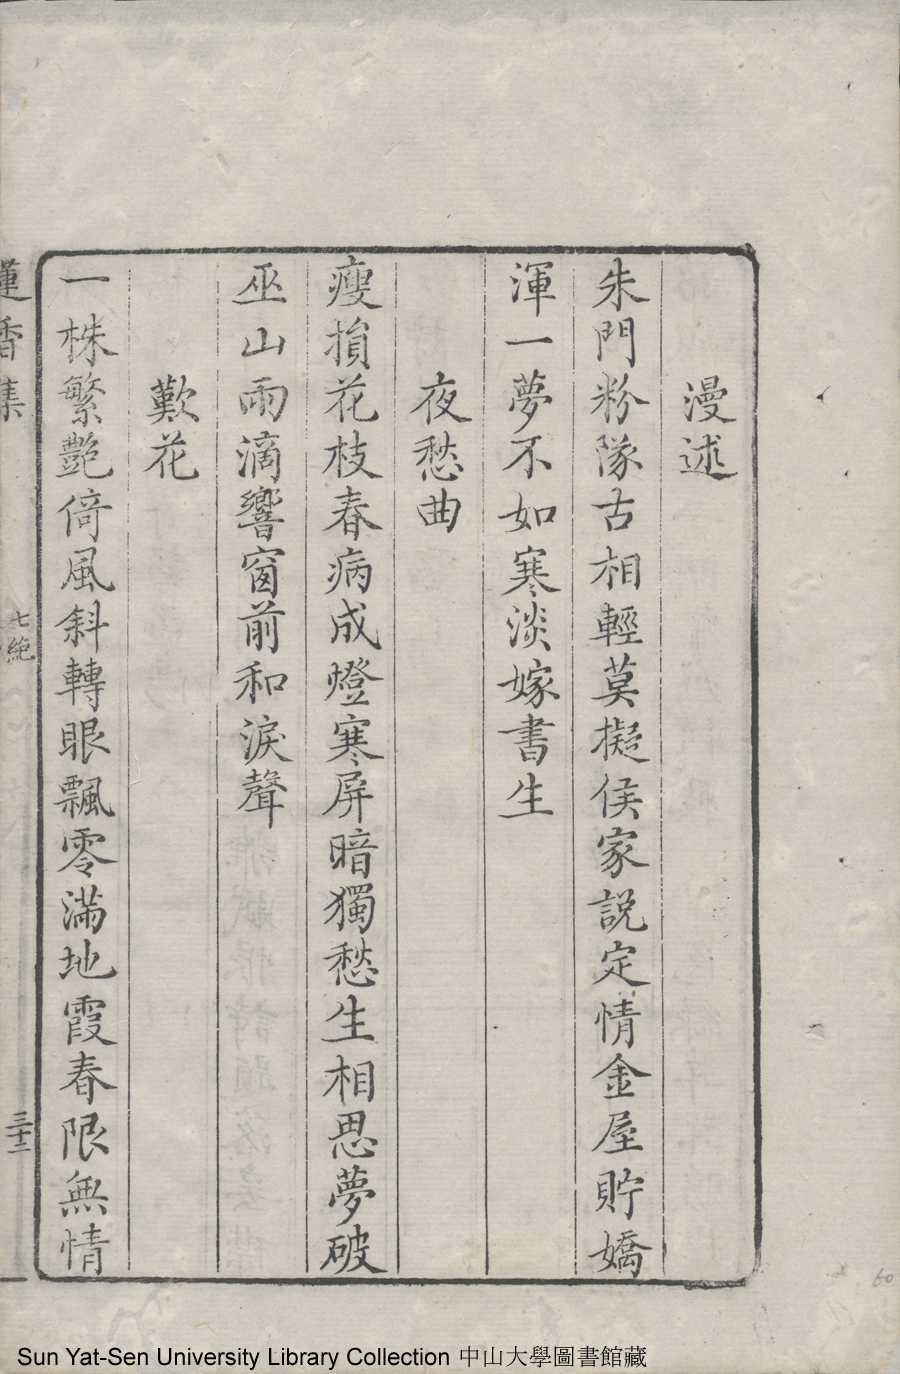 漫述
朱門粉隊古相輕莫擬侯家説定情金屋貯嬌
渾一夢不如寒淡嫁書生
夜愁曲
瘦損花枝春病成燈寒屏暗獨愁生相思夢破
巫山雨滴響窗前和淚聲
歎花
一株繁艷倚風斜轉眼飄零滿地霞春限無情
蓮香集
七絕
三十二
60
Sun Yat-Sen University Library Collection 中山大學圖書館藏